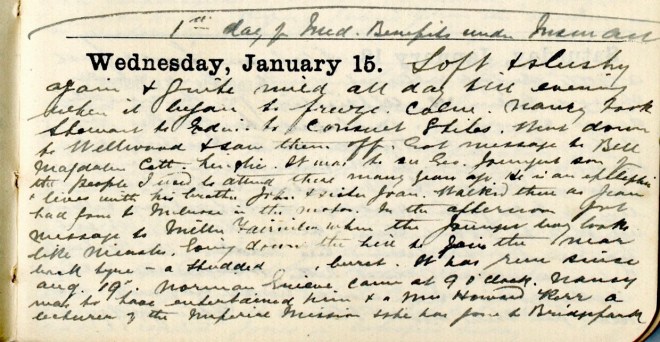 1st day of Med. Benefits under Insuran
Wednesday, January 15. Soft & slushy
again & quite mild all day till evening
when it began to freeze. Calm. Nancy took
Stewart to Edin. to Consult Stiles. Went down
to Wellwood & saw them off. Got message to Bell
Magdalen Cott. It was to see Geo. Youngest son of
the people I used to attend there many years ago. He is an epileptic
& lives with his brother John & sister Joan. Walked there as Jean
had gone to Melrose in the motor. In the afternoon got
message to Miller Fairnilee where the younger boy looks
like Going down the hill to join the near
back tyre - a Studded burst. It has run since
Aug. 19th. Norman Grieve came at 9 o'clock. Nancy
was to have entertained him & a Mrs Howard Kerr a
lecturer of the Imperial Mission she has gone to